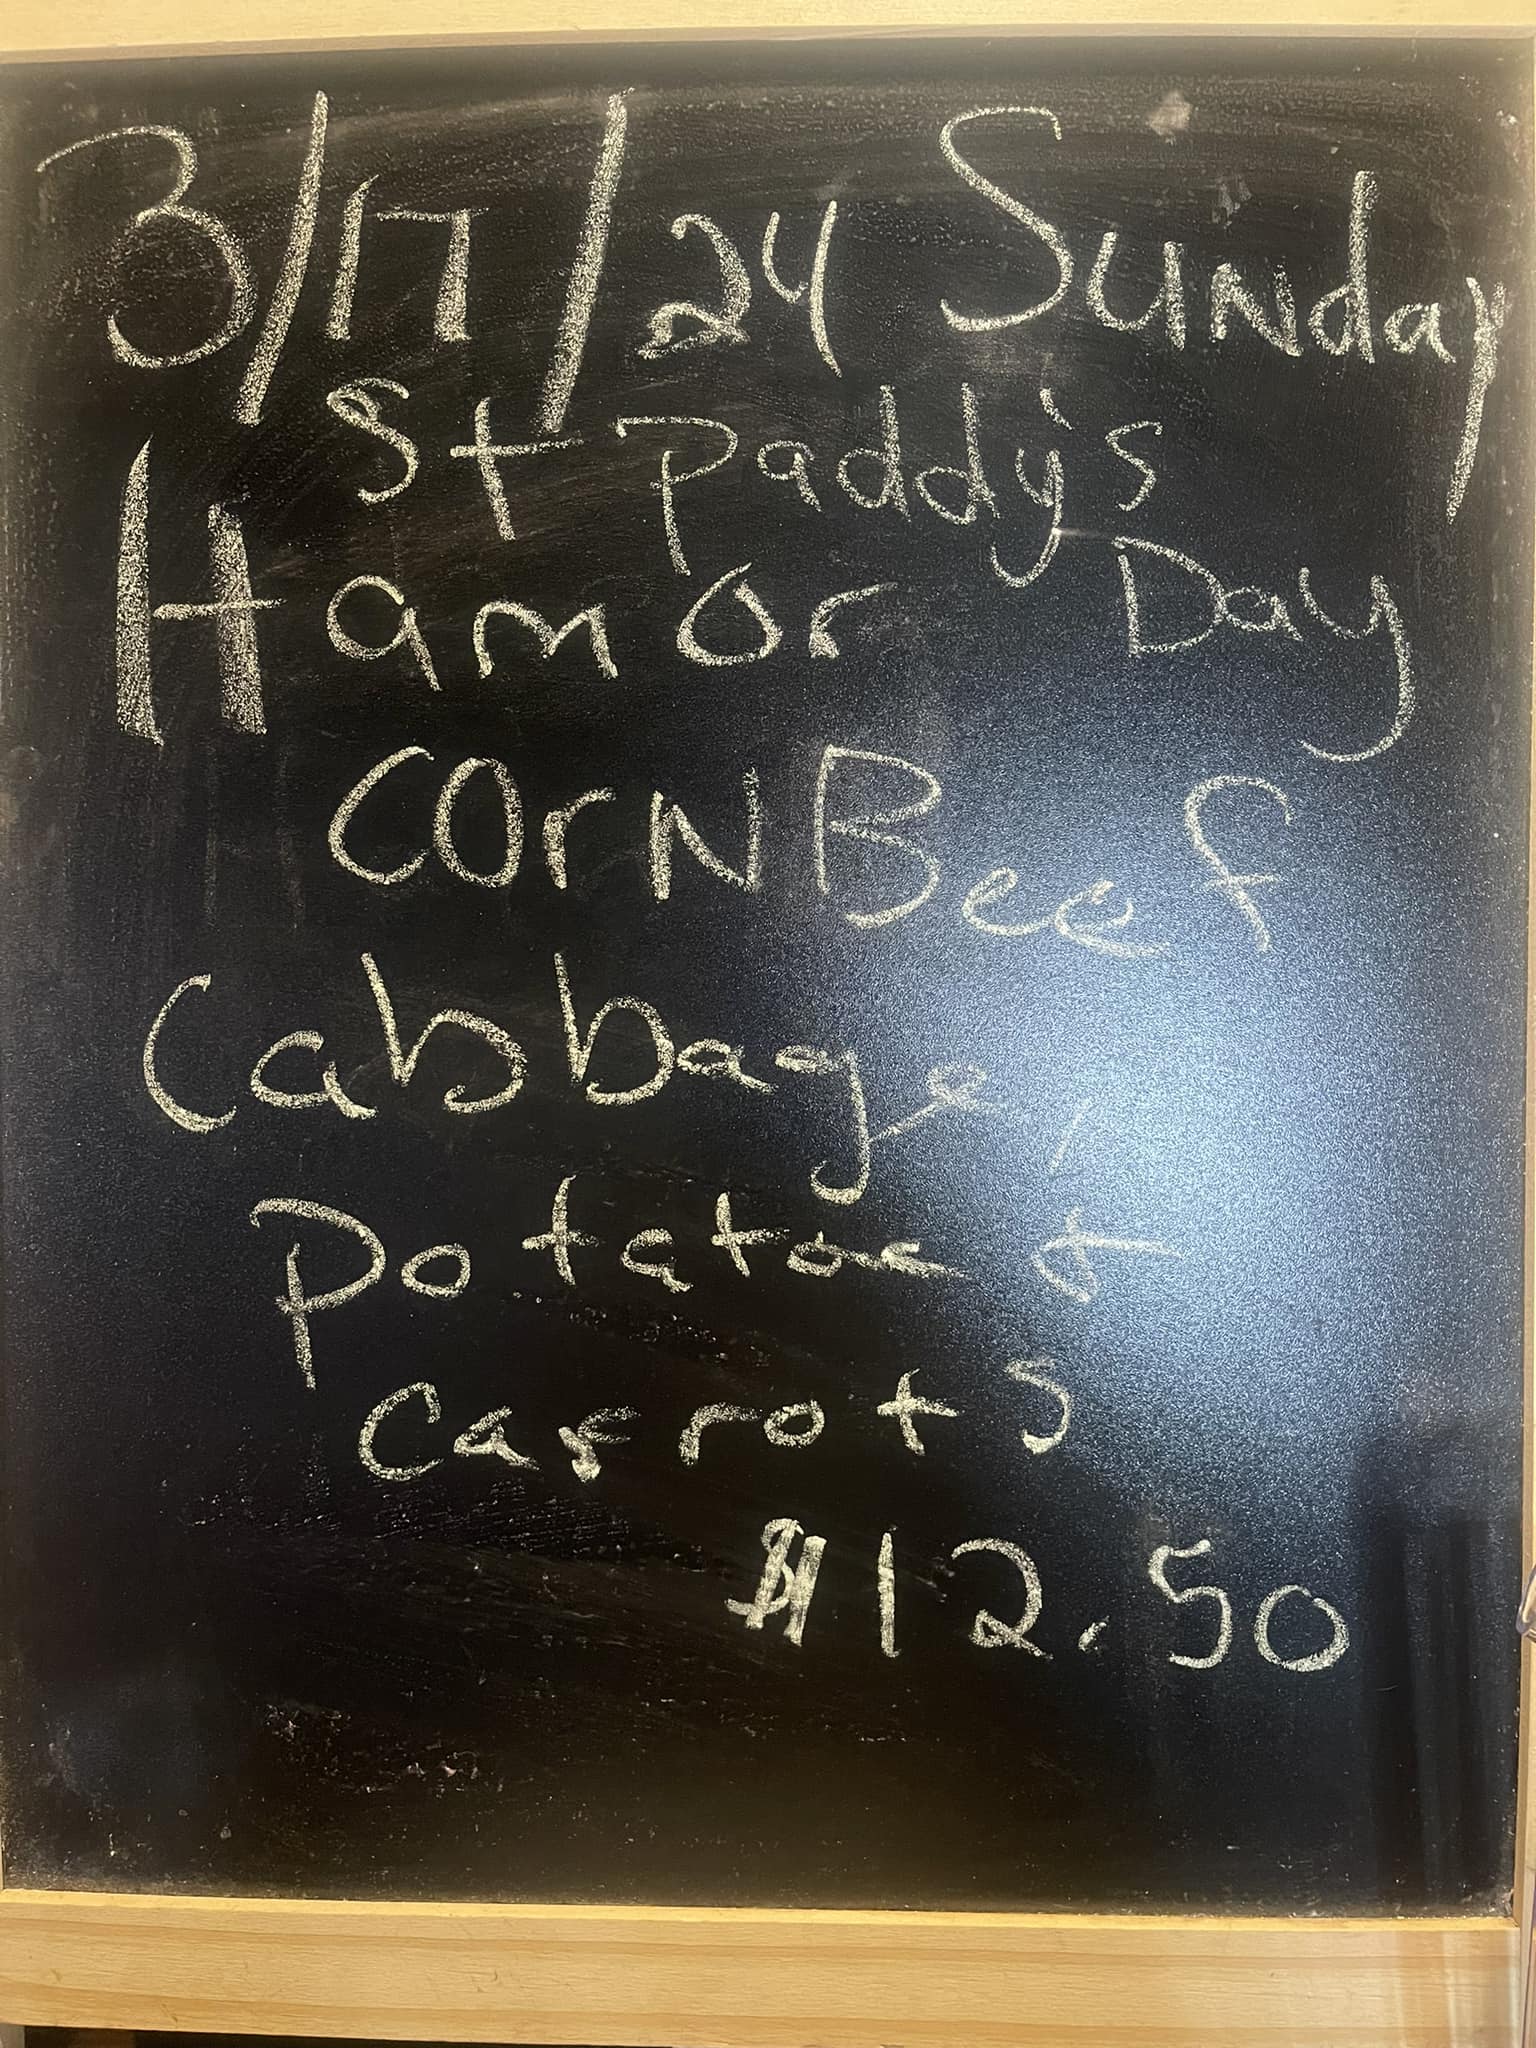 3/17/24 Sunday
St Paddy's
Ham or Day
Corn Beef
Cabbage,
Potatoe &
Carrots
$12.50